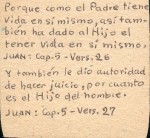 Porque como el Padre tiene
vida en sí mismo, así tam-
bién ha dado al Hijo el
tener vida en sí mismo.
JUAN: Cap.-5 - Vers. 26
Y también le dió autoridad
de hacer juicio, por cuanto
es el Hijo del hombre.
JUAN: Cap.-5 - Vers. 27